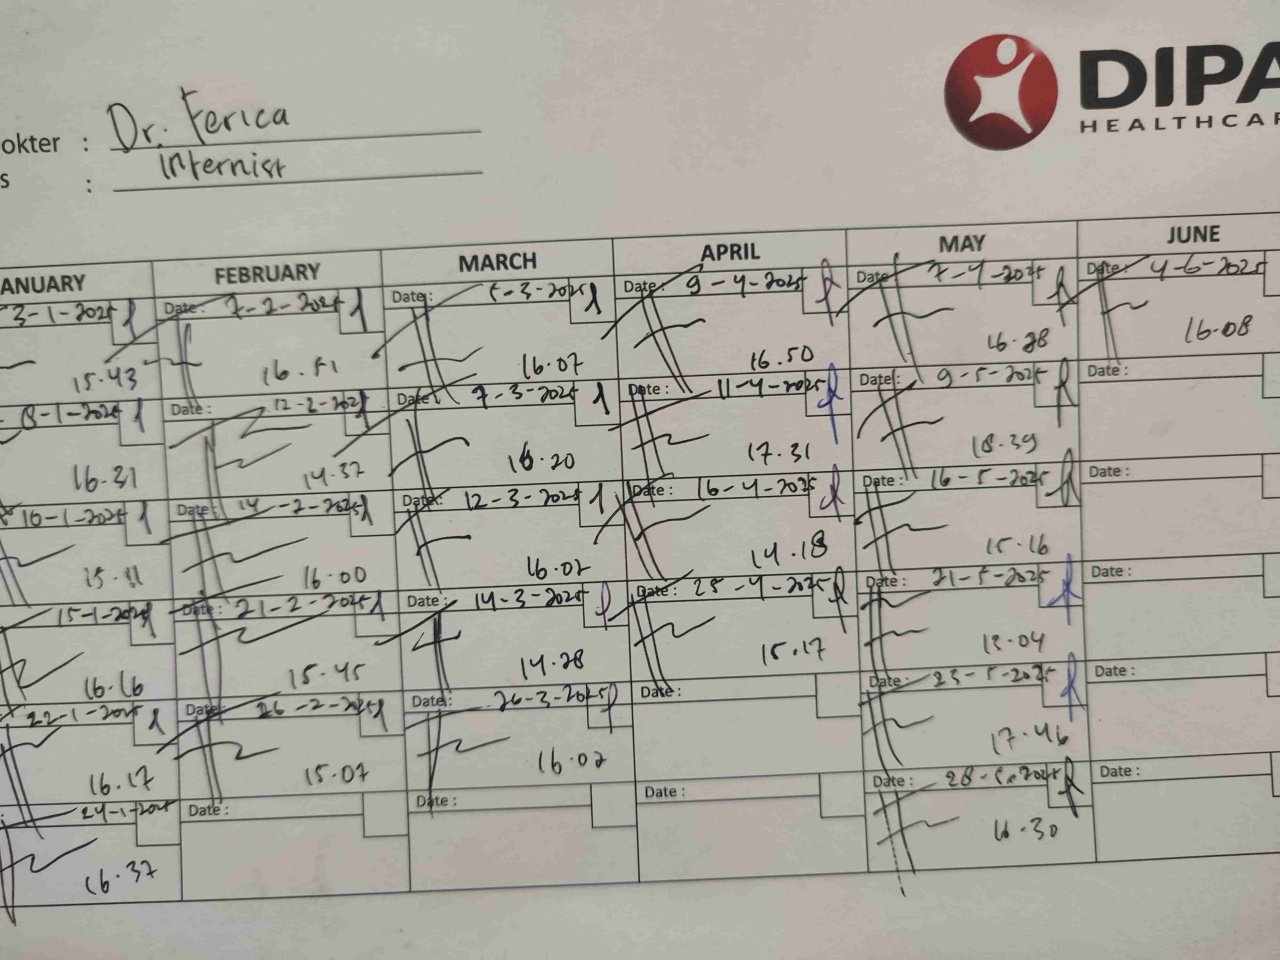 DIPA
HEALTHCAR
okter : Dr. Ferica
s : Internist
ANUARY FEBRUARY MARCH APRIL MAY JUNE
3-1-2025 Date : 7-2-2025 Date : 5-3-2025 Date : 9-4-2025 Date : 7-4-2025 Date : 4-6-2025
15.43 16.51 16.07 16.50 16.28 16.08
8-1-2025 Date : 12-2-2025 Date : 7-3-2025 Date : 11-4-2025 Date : 9-5-2025 Date :
16.31 14.37 16.20 17.31 18.39
10-1-2025 Date : 14-2-2025 Date : 12-3-2025 Date : 16-4-2025 Date : 16-5-2025 Date :
15.11 16.00 16.02 14.18 15.16
15-1-2025 Date : 21-2-2025 Date : 14-3-2025 Date : 25-4-2025 Date : 21-5-2025 Date :
16.16 15.45 14.28 15.17 13.04
22-1-2025 Date : 26-2-2025 Date : 26-3-2025 Date : Date : 23-5-2025 Date :
16.17 15.07 16.02 17.46
24-1-2025 Date : Date : Date : Date : 28-5-2025 Date :
16.37 16.30